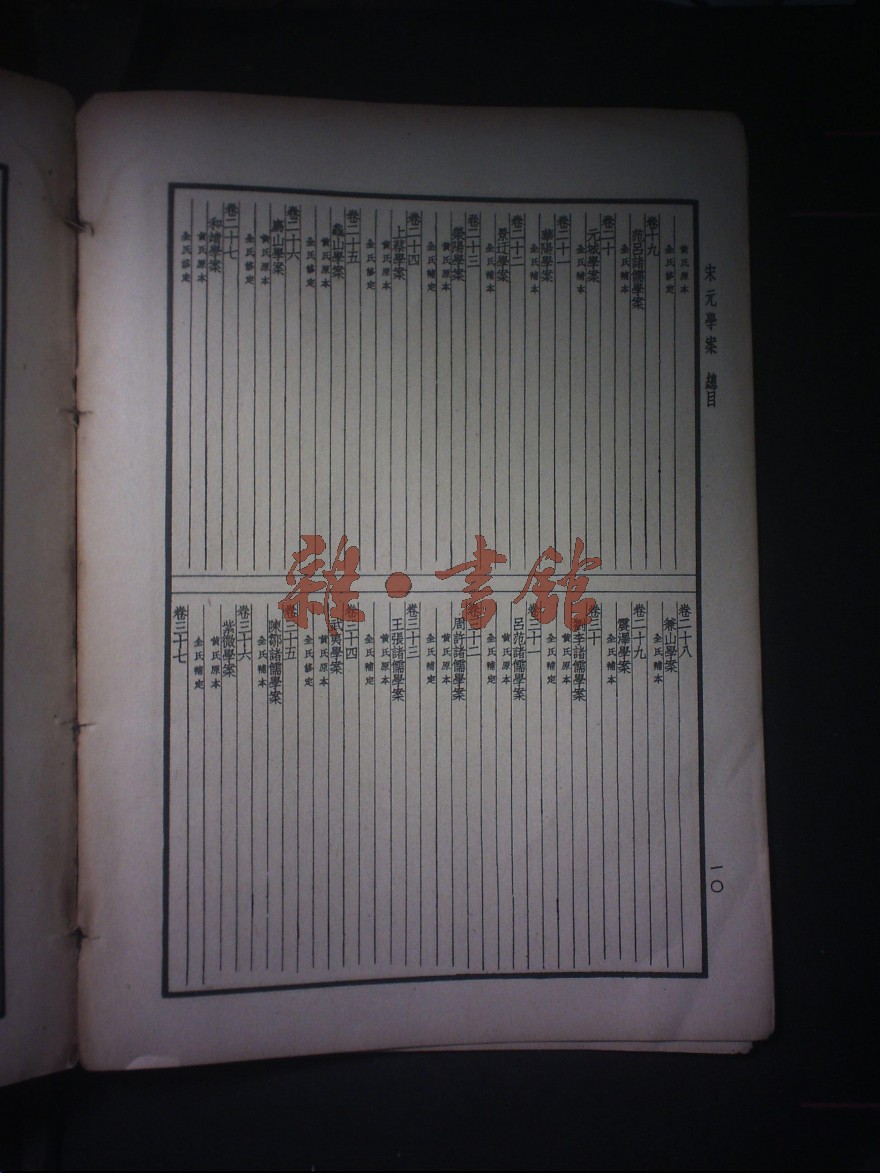 宋元學案 總目
一〇
黃氏原本
全氏修定
卷十九
范呂諸儒學案
全氏補本
卷二十
元城學案
全氏補本
卷二十一
華陽學案
全氏補本
卷二十二
景迂學案
全氏補本
卷二十三
滎陽學案
黃氏原本
全氏補定
卷二十四
上蔡學案
黃氏原本
全氏修定
卷二十五
龜山學案
黃氏原本
全氏修定
卷二十六
廌山學案
黃氏原本
全氏修定
卷二十七
和靖學案
黃氏原本
全氏修定
卷二十八
兼山學案
全氏補本
卷二十九
震澤學案
全氏補本
卷三十
劉李諸儒學案
黃氏原本
全氏補定
卷三十一
呂范諸儒學案
黃氏原本
全氏補定
卷三十二
周許諸儒學案
黃氏原本
全氏補定
卷三十三
王張諸儒學案
黃氏原本
全氏補定
卷三十四
武夷學案
黃氏原本
全氏修定
卷三十五
陳鄒諸儒學案
全氏補本
卷三十六
紫微學案
黃氏原本
全氏補定
卷三十七
雜·書館